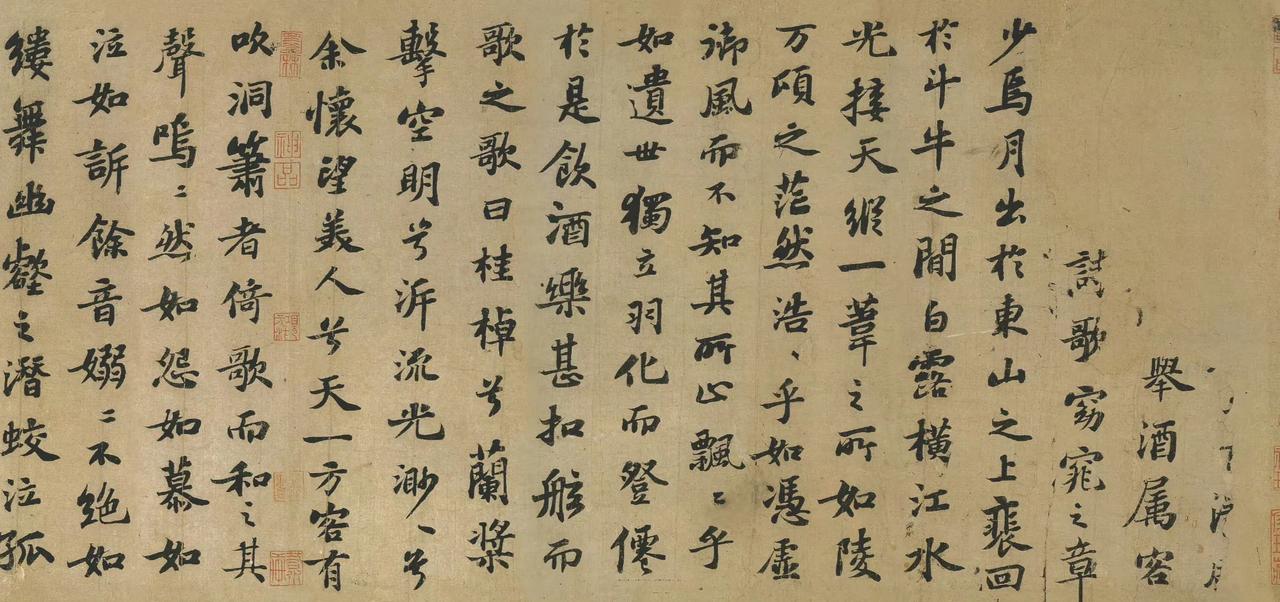 舉酒属客
歌窈窕之章
少焉月出於東山之上裴回
於斗牛之間白露橫江水
光接天縱一葦之所如陵
万頃之茫然浩、乎如憑虛
御風而不知其所止飄〻乎
如遺世獨立羽化而登僊
於是飲酒樂甚扣舷而
歌之歌曰桂棹兮蘭槳
擊空明兮泝流光渺、兮
余懷望美人兮天一方客有
吹洞簫者倚歌而和之其
聲嗚〻然如怨如慕如
泣如訴餘音嫋〻不絕如
縷舞幽壑之潛蛟泣孤